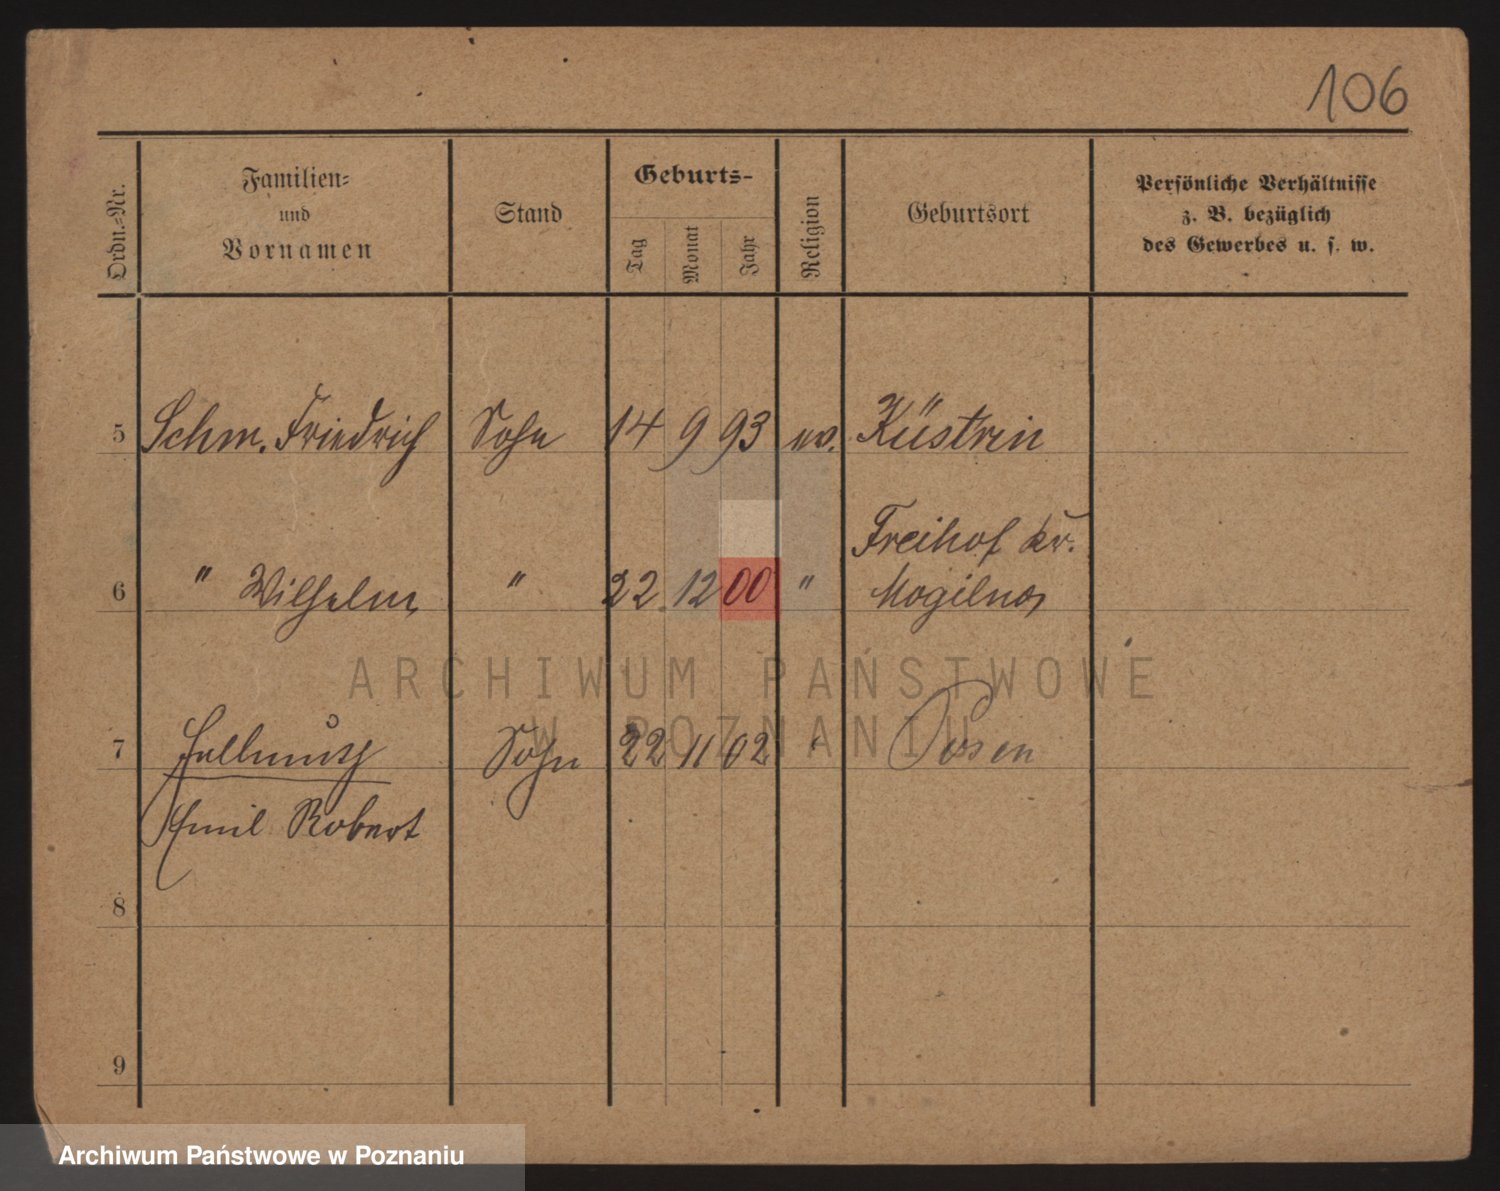 106
Ordn.-Nr.
Familien-
und
Vornamen
Stand
Geburts-
Tag
Monat
Jahr
Religion
Geburtsort
Persönliche Verhältnisse
z. B. bezüglich
des Gewerbes u. s. w.
5 Schm. Friedrich Sohn 14 9 93 ev. Küstrin
Freihof Kr.
6 " Wilhelm " 22 12 00 " Mogilno
ARCHIWUM PAŃSTWOWE
W POZNANIU
7 Hellmuth Sohn 22 11 02 " Posen
Emil Robert
8
9
Archiwum Państwowe w Poznaniu